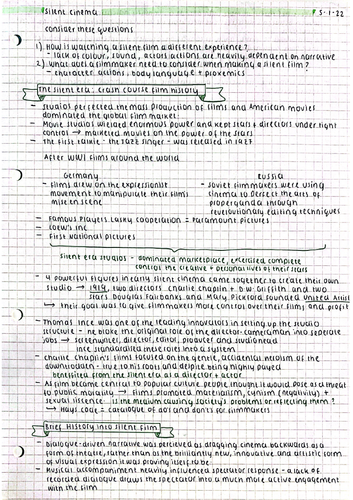 silent cinema
5-1-22
consider these questions
1) How is watching a silent film a different experience?
- lack of colour, sound, actors actions are heavily dependent on narrative
2) What does a filmmaker need to consider when making a silent film?
- character actions, body language + proxemics
The silent era: crash course film history
- studios perfected the mass production of films and American movies
dominated the global film market:
- Movie studios wielded enormous power and kept stars + directors under tight
control → marketed movies on the power of the stars
- The first talkie - the jazz singer - was released in 1927
After WW1 films around the world
Germany
- films drew on the expressionist
movement to manipulate their films
mise en scene
Russia
- Soviet filmmakers were using
cinema to perfect the arts of
propaganda through
revolutionary editing techniques
- Famous Players Lasky cooperation = Paramount Pictures
- Loew's inc
- First National pictures
silent era studios - dominated marketplace, exercised complete
control the creative + personal lives of their stars
- 4 powerful figures in early silent cinema came together to create their own
studio → 1919, two directors charlie chaplin + D.W. Griffith and two
stars Douglas Fairbanks and Mary Pickford founded United Artist
↳ their goals was to give filmmakers more control over their films and profit
- Thomas Ince was one of the leading innovators in setting up the studio
structure - he broke the original role of the director-cameraman into seperate
jobs → screenwriter, director, editor, producer and studio head
Ince standardised these roles into a system
- charlie chaplin's films focused on the gentle, accidental heroism of the
downtrodden - true to his roots and despite being highly played
benefitted from the silent era as a director + actor
- As film became central to popular culture people thought it would pose as a threat
to public morality → films promoted materialism, cynism (negativity) +
sexual license is the medium causing society's problems or reflecting them?
↳ Hays code = catalogue of do's and don'ts for filmmakers
Brief History into silent film
- dialogue-driven narrative was percieved as dragging cinema backwards as a
form of theatre, rather than as the brilliantly new, innovative and artistic form
of visual expression it was proving itself to be
- Musical accompaniment heavily influenced spectator response - a lack of
recorded dialogue draws the spectator into a much more active engagement
with the film